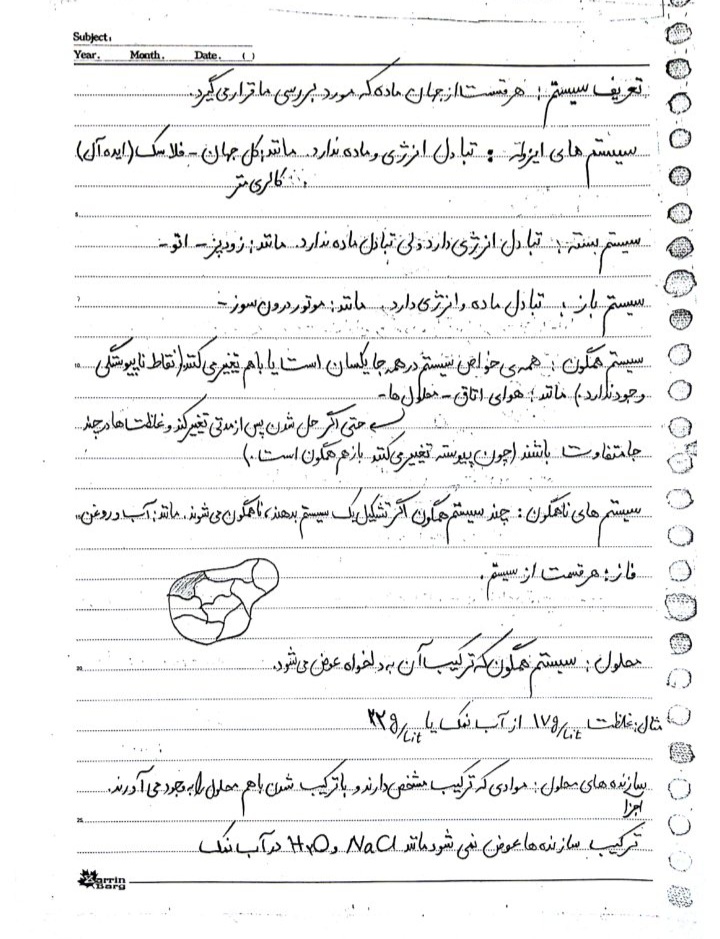 Subject:
Year. Month. Date. ( )
تعریف سیستم : هر قسمت از جهان ماده که مورد بررسی ما قرار می گیرد.
سیستم های ایزوله : تبادل انرژی و ماده ندارد. مانند: کل جهان - فلاسک (ایده آل)
کالری متر
سیستم بسته : تبادل انرژی دارد ولی تبادل ماده ندارد. مانند: زودپز - اتو -
سیستم باز : تبادل ماده و انرژی دارد. مانند: موتور درون سوز -
سیستم همگون : همه ی خواص سیستم در همه جا یکسان است یا با هم تغییر می کنند (نقاط ناپیوستگی
وجود ندارد.) مانند: هوای اتاق - محلول ها -
حتی اگر حل شدن پس از مدتی تغییر کند و غلظت ها در چند
جا متفاوت باشند (چون پیوسته تغییر می کنند باز هم همگون است.)
سیستم های ناهمگون : چند سیستم همگون اگر تشکیل یک سیستم بدهند، ناهمگون می شوند. مانند: آب و روغن
فاز: هر قسمت از سیستم.
محلول : سیستم همگون که ترکیب آن به دلخواه عوض می شود.
مثال: غلظت ۱۷g/Lit از آب نمک یا ۲۲g/Lit
سازنده های محلول : موادی که ترکیب مشخص دارند و با ترکیب شدن با هم محلول را به وجود می آورند.
اجزا
ترکیب سازنده ها عوض نمی شود مانند NaCl و H۲O در آب نمک
Zarrin Barg